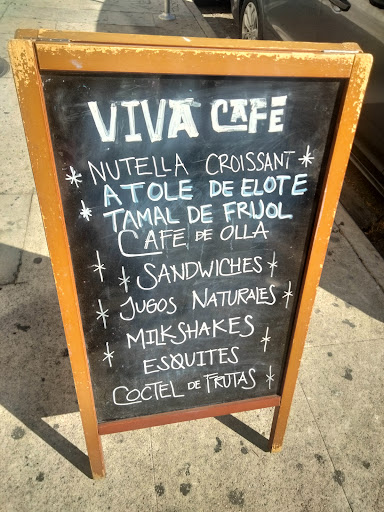 VIVA CAFÉ
NUTELLA CROISSANT
ATOLE DE ELOTE
TAMAL DE FRIJOL
CAFÉ DE OLLA
SANDWICHES
JUGOS NATURALES
MILKSHAKES
ESQUITES
COCTEL DE FRUTAS